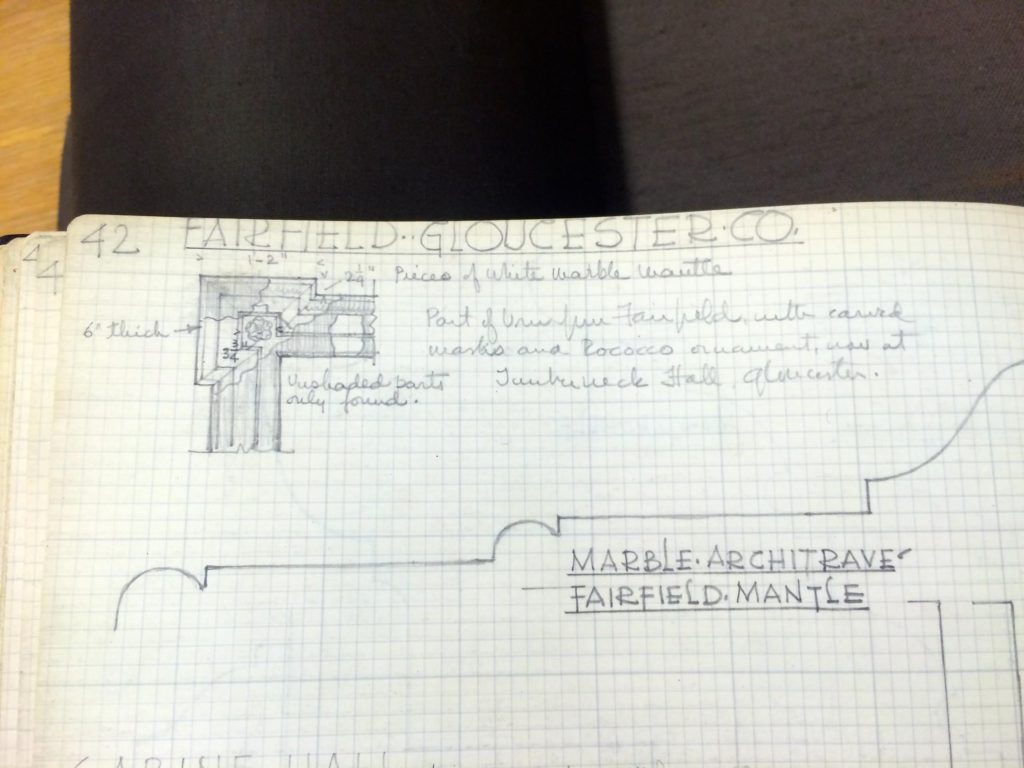 42 FAIRFIELD·GLOUCESTER·CO.
44
1'-2"
2¼"
Pieces of white marble mantle
6" thick
3¾
Part of from Fairfield, with carved
masks and Rococco ornament, now at
Timberneck Hall, Gloucester.
Unshaded parts
only found.
MARBLE·ARCHITRAVE
FAIRFIELD·MANTLE
HALL